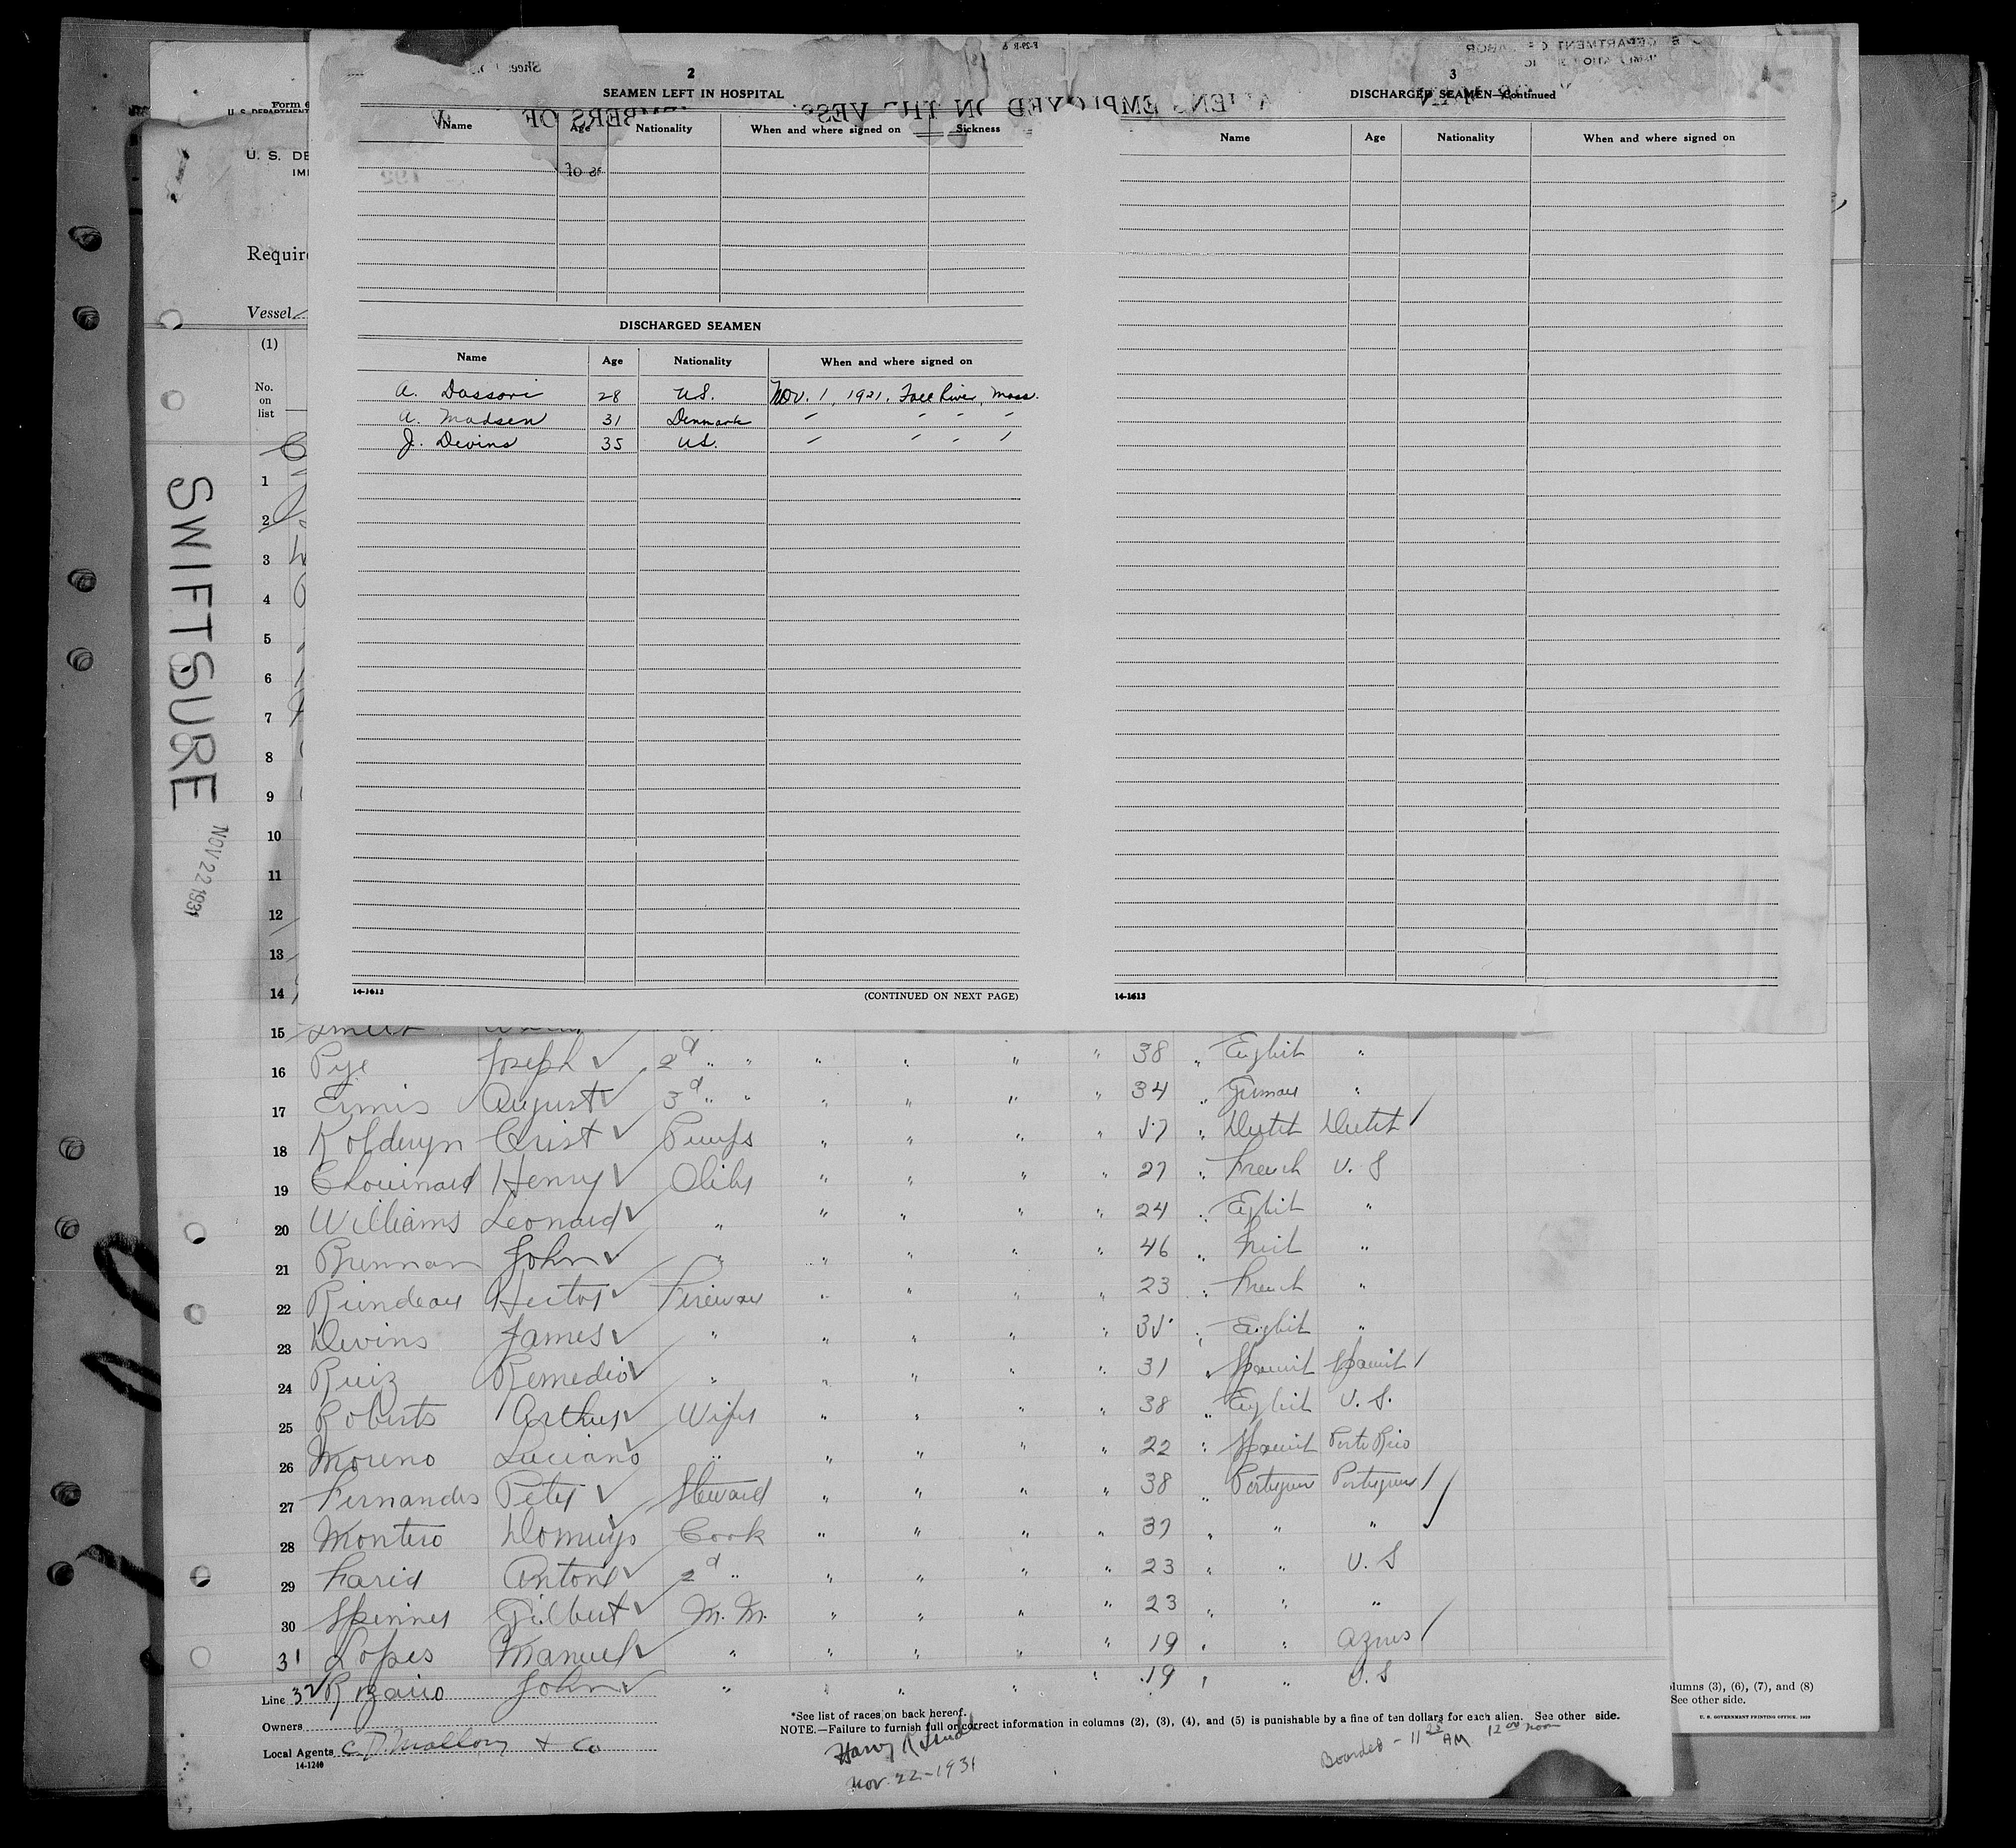 2
SEAMEN LEFT IN HOSPITAL
Name Age Nationality When and where signed on Sickness
DISCHARGED SEAMEN
Name Age Nationality When and where signed on
A. Dassori 28 U.S. Nov. 1, 1921, Fall River, Mass.
A. Madsen 31 Denmark " " " "
J. Devins 35 U.S. " " " "
14-1613 (CONTINUED ON NEXT PAGE)
3
DISCHARGED SEAMEN—Continued
Name Age Nationality When and where signed on
14-1613
Form 6
U. S. DEPARTMENT
U. S. DE
IMI
Require
Vessel
(1)
No.
on
list
SWIFTSURE
NOV 22 1931
1
2
3
4
5
6
7
8
9
10
11
12
13
14
15
16 Pye Joseph 2d " " " " " " 38 " English "
17 Ermis August 3d " " " " " " 34 " German "
18 Kolderyn Crist Pumps " " " " 57 " Dutch Dutch
19 Chouinard Henry Oiler " " " " 27 " French U. S
20 Williams Leonard " " " " " 24 " English "
21 Brennan John " " " " " 46 " Irish "
22 Rundeau Hector Fireman " " " " 23 " French "
23 Devins James " " " " " 35 " English "
24 Ruiz Remedio " " " " " 31 " Spanish Spanish
25 Roberts Arthur Wiper " " " " 38 " English U. S.
26 Moreno Luciano " " " " " 22 " Spanish Porto Rico
27 Fernandes Peter Steward " " " " 38 " Portuguese Portuguese
28 Montero Domingo Cook " " " " 37 " " "
29 Faria Antone 2d " " " " " 23 " " U. S
30 Spinner Gilbert M. M. " " " " 23 " " "
31 Lopes Manuel " " " " " 19 " " Azores
Line 32 Rozario John " " " " " 19 " " U. S
Owners
Local Agents C. D. Mallory & Co
14-1240
*See list of races on back hereof.
NOTE.—Failure to furnish full or correct information in columns (2), (3), (4), and (5) is punishable by a fine of ten dollars for each alien. See other side.
Nov. 22-1931
Boarded - 11 25 AM 12 00 noon
olumns (3), (6), (7), and (8)
See other side.
U. S. GOVERNMENT PRINTING OFFICE. 1929